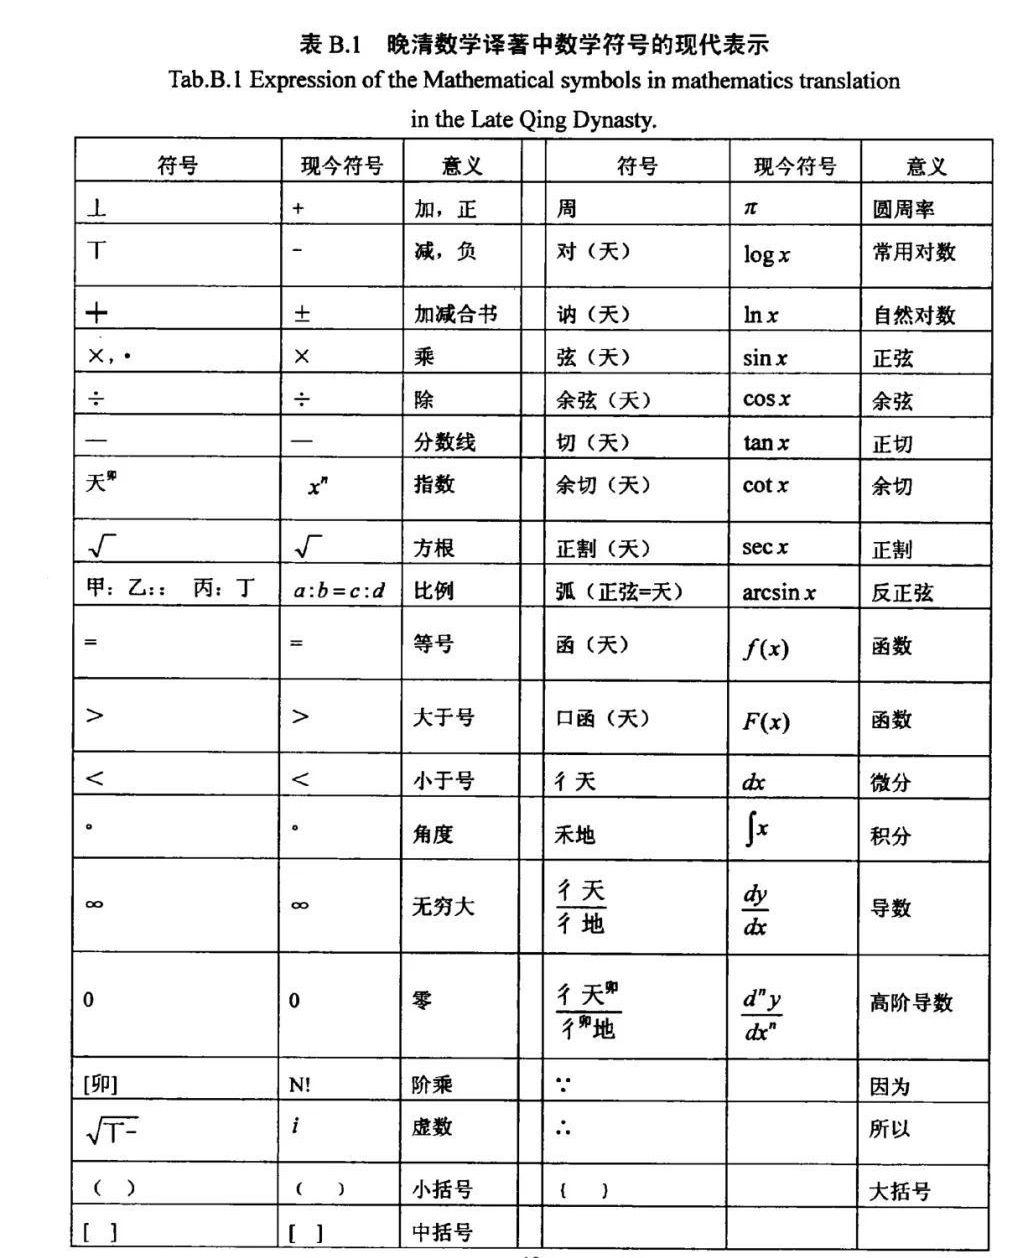 表 B.1 晚清数学译著中数学符号的现代表示
Tab.B.1 Expression of the Mathematical symbols in mathematics translation
in the Late Qing Dynasty.
符号 现今符号 意义 符号 现今符号 意义
⊥ + 加，正 周 π 圆周率
丅 - 减，负 对（天） log x 常用对数
十 ± 加减合书 讷（天） ln x 自然对数
×，· × 乘 弦（天） sin x 正弦
÷ ÷ 除 余弦（天） cos x 余弦
— — 分数线 切（天） tan x 正切
天^卯 x^n 指数 余切（天） cot x 余切
√ √ 方根 正割（天） sec x 正割
甲：乙：：丙：丁 a:b=c:d 比例 弧（正弦=天） arcsin x 反正弦
= = 等号 函（天） f(x) 函数
> > 大于号 口函（天） F(x) 函数
< < 小于号 彳天 dx 微分
° ° 角度 禾地 ∫x 积分
∞ ∞ 无穷大 彳天/彳地 dy/dx 导数
0 0 零 彳天^卯/彳^卯地 d^n y/dx^n 高阶导数
[卯] N! 阶乘 ∵ 因为
√丅- i 虚数 ∴ 所以
（ ） （ ） 小括号 { } 大括号
[ ] [ ] 中括号